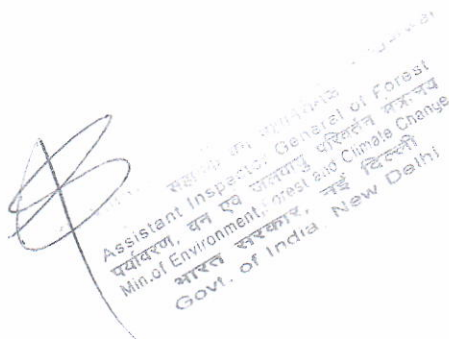 Assistant Inspector General of Forest
पर्यावरण, वन एवं जलवायु परिवर्तन मंत्रालय
Min.of Environment, Forest and Climate Change
भारत सरकार, नई दिल्ली
Govt. of India, New Delhi